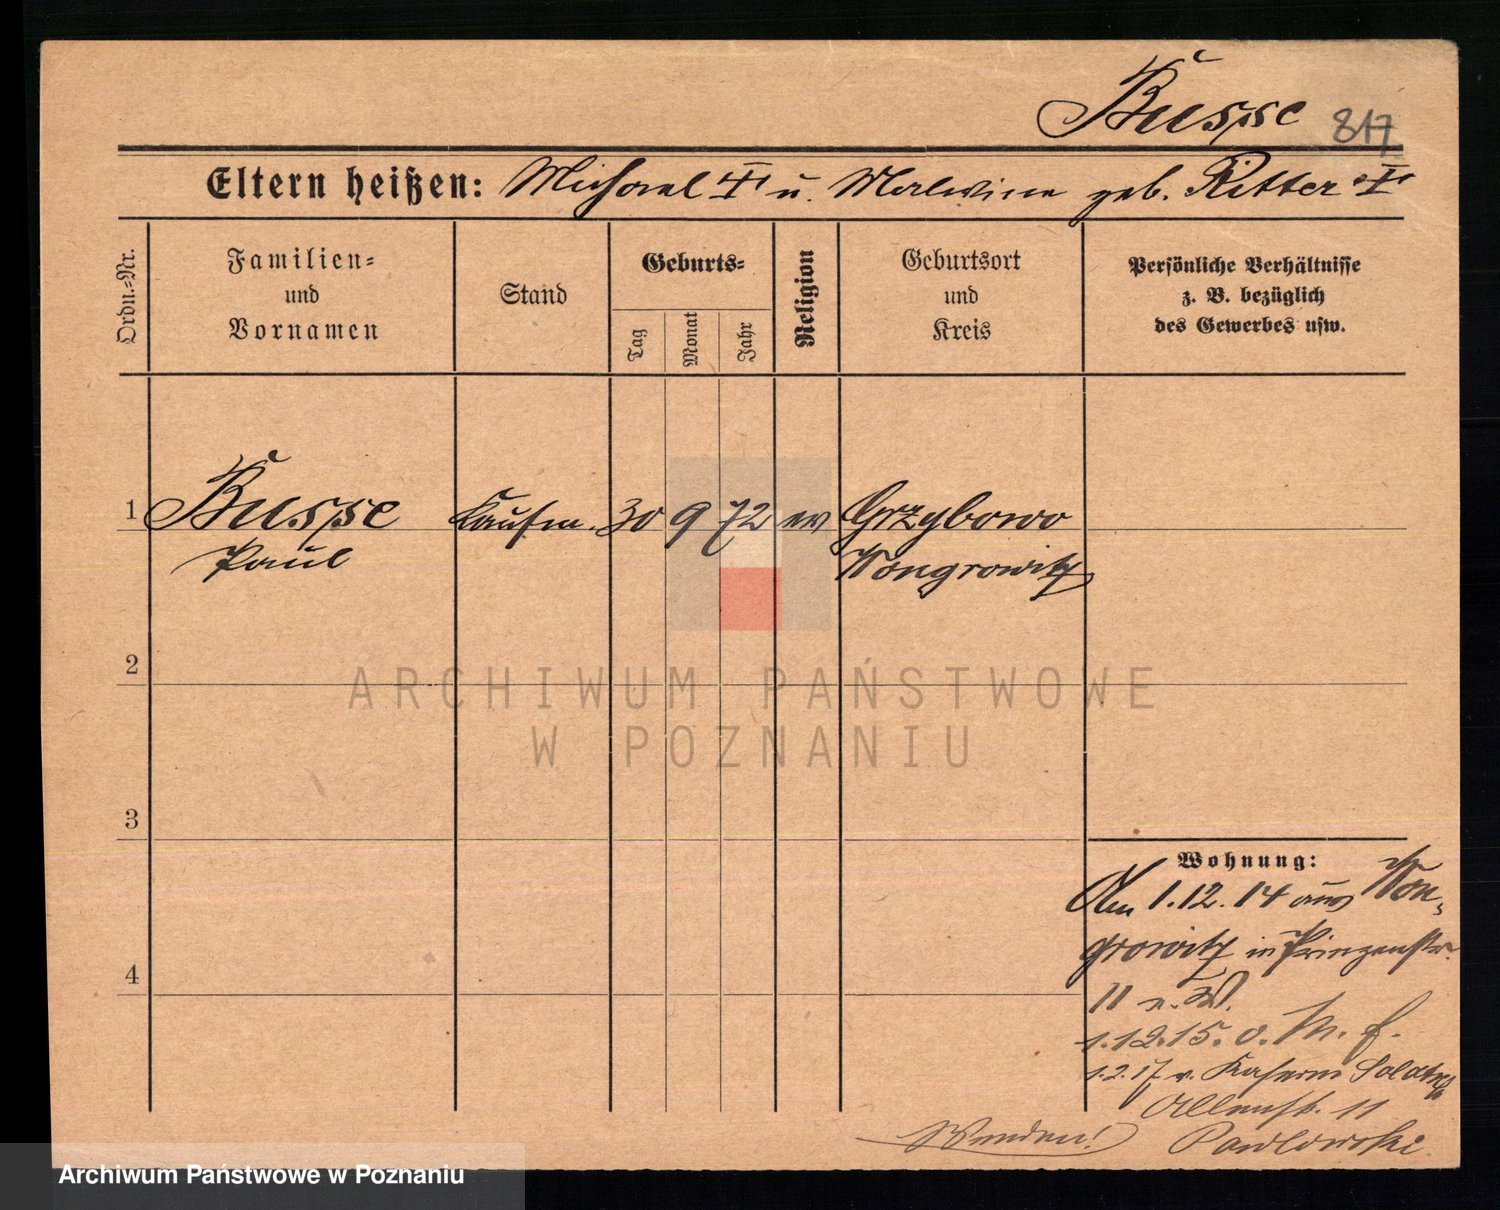 Busse 817
Eltern heißen: Michael † u. Malwine geb. Ritter †
Ordn.-Nr.
Familien-
und
Vornamen
Stand
Geburts-
Tag
Monat
Jahr
Religion
Geburtsort
und
Kreis
Persönliche Verhältnisse
z. B. bezüglich
des Gewerbes usw.
1 Busse Kaufm. 30 9 72 ev Grzybowo
Paul Wongrowitz
2
ARCHIWUM PAŃSTWOWE
W POZNANIU
3
Wohnung:
Am 1.12.14 aus Won-
growitz in Prinzenstr.
4
11 n. W.
1.12.15. o. M. f.
1.2.17 v. Kasern Soldat
Allenst. 11
Wenden! Pawlowski
Archiwum Państwowe w Poznaniu